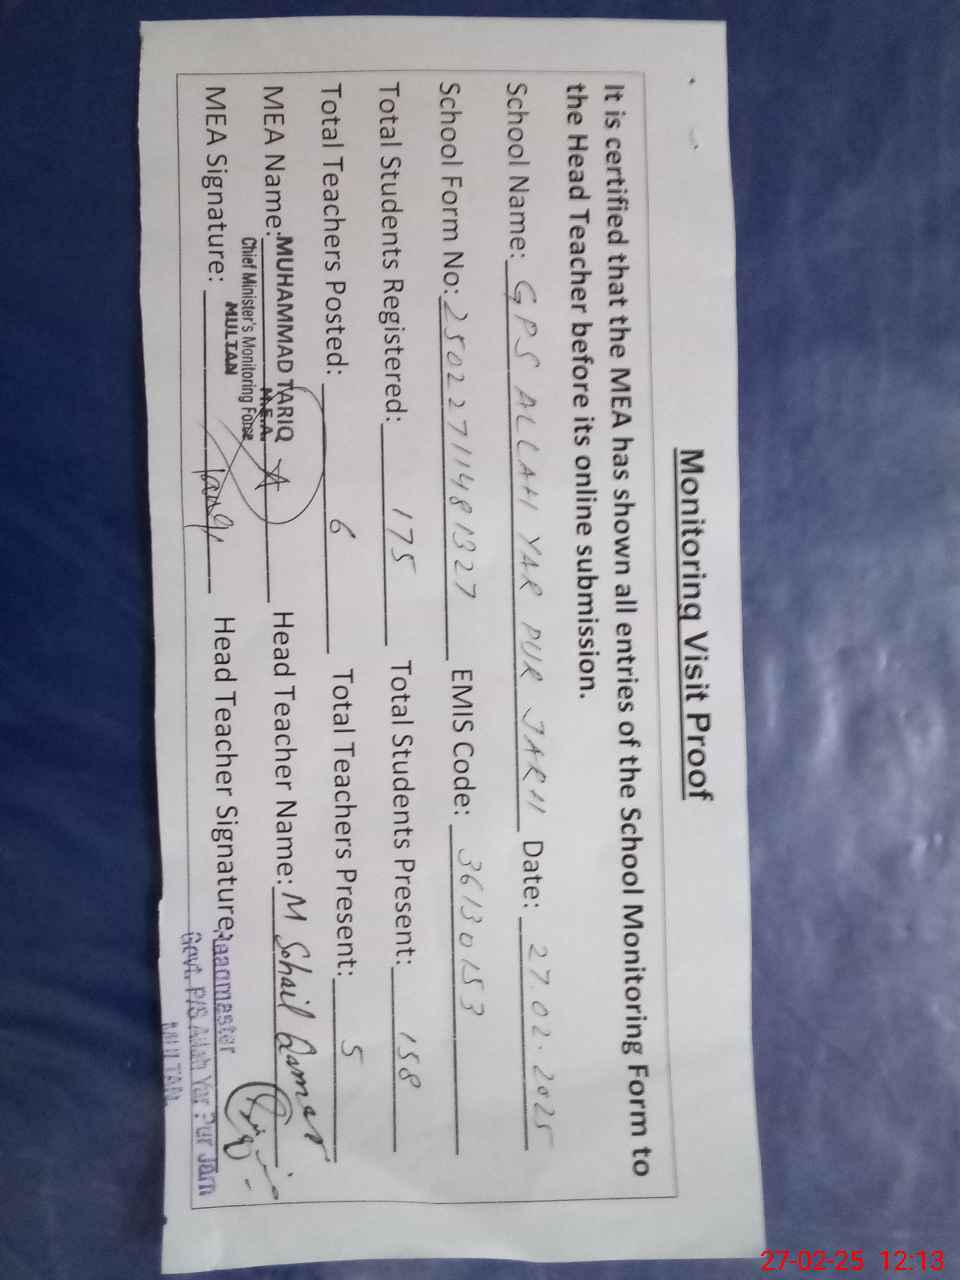 Monitoring Visit Proof
It is certified that the MEA has shown all entries of the School Monitoring Form to
the Head Teacher before its online submission.
School Name: GPS ALLAH YAR PUR JARH Date: 27.02.2025
School Form No: 2502271148 1327 EMIS Code: 36130153
Total Students Registered: 175 Total Students Present: 158
Total Teachers Posted: 6 Total Teachers Present: 5
MEA Name: MUHAMMAD TARIQ Head Teacher Name: M Sohail Qamar
M.E.A.
Chief Minister's Monitoring Force
MULTAN
MEA Signature: Tariq Head Teacher Signature:
Headmaster
Govt. P/S Allah Yar Pur Jarh
MULTAN
27-02-25 12:13